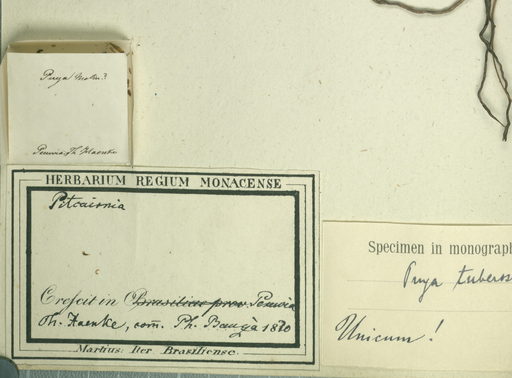 Puya
Peruvia Th. Haenke
HERBARIUM REGIUM MONACENSE
Pitcairnia
Crescit in Brasiliae prov. Peruvia
Th. Haenke, com. Ph. 1810
Martius: Iter Brasiliense.
Specimen in monograph
Puya tuberos
Unicum!